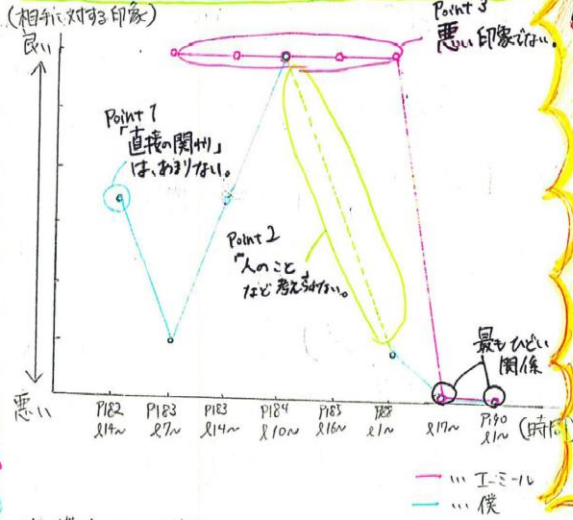 (相手に対する印象)
良い
Point 3
悪い印象でない。
Point 1
「直接の関り」
は、あまりない。
Point 2
"人のこと
など考えられない。
最もひどい
関係
悪い
P182
l14~
P183
l7~
P183
l14~
P184
l10~
P185
l16~
P188
l1~
l17~
P190
l1~
(時間)
… エーミール
… 僕